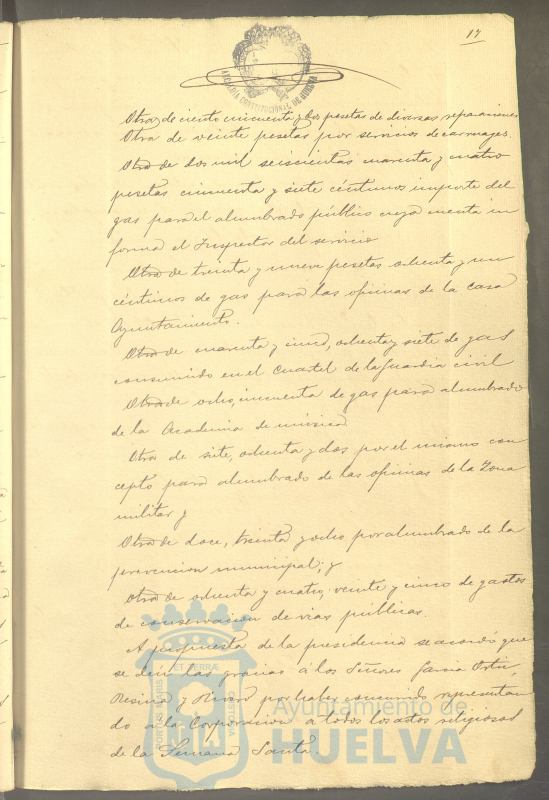 17
ALCALDIA CONSTITUCIONAL DE HUELVA
Otra de ciento cincuenta y dos pesetas de diversas reparaciones
Otra de veinte pesetas por servicios de carruajes.
Otra de dos mil seiscientas cuarenta y cuatro
pesetas cincuenta y siete céntimos importe del
gas para el alumbrado público cuya cuenta in
forma el Inspector del servicio
Otra de treinta y nueve pesetas ochenta y un
céntimos de gas para las oficinas de la casa
Ayuntamiento.
Otra de cuarenta y cinco, ochenta y siete de gas
consumido en el Cuartel de la Guardia civil
Otra de ocho, cincuenta de gas para alumbrado
de la Academia de música
Otra de siete, ochenta y dos por el mismo con
cepto para alumbrado de las oficinas de la Zona
militar y
Otra de doce, treinta y ocho por alumbrado de la
prevencion municipal; y
Otra de ochenta y cuatro, veinte y cinco de gastos
de conservacion de vias públicas.
A propuesta de la presidencia se acordó que
se dén las gracias á los Señores Garcia Ortiz
Resina y por haber concurrido representan
do a la Corporacion a todos los actos religiosos
de la Semana Santa.
PORTUS MARIS ET TERRAE CUSTODIA
Ayuntamiento de
HUELVA